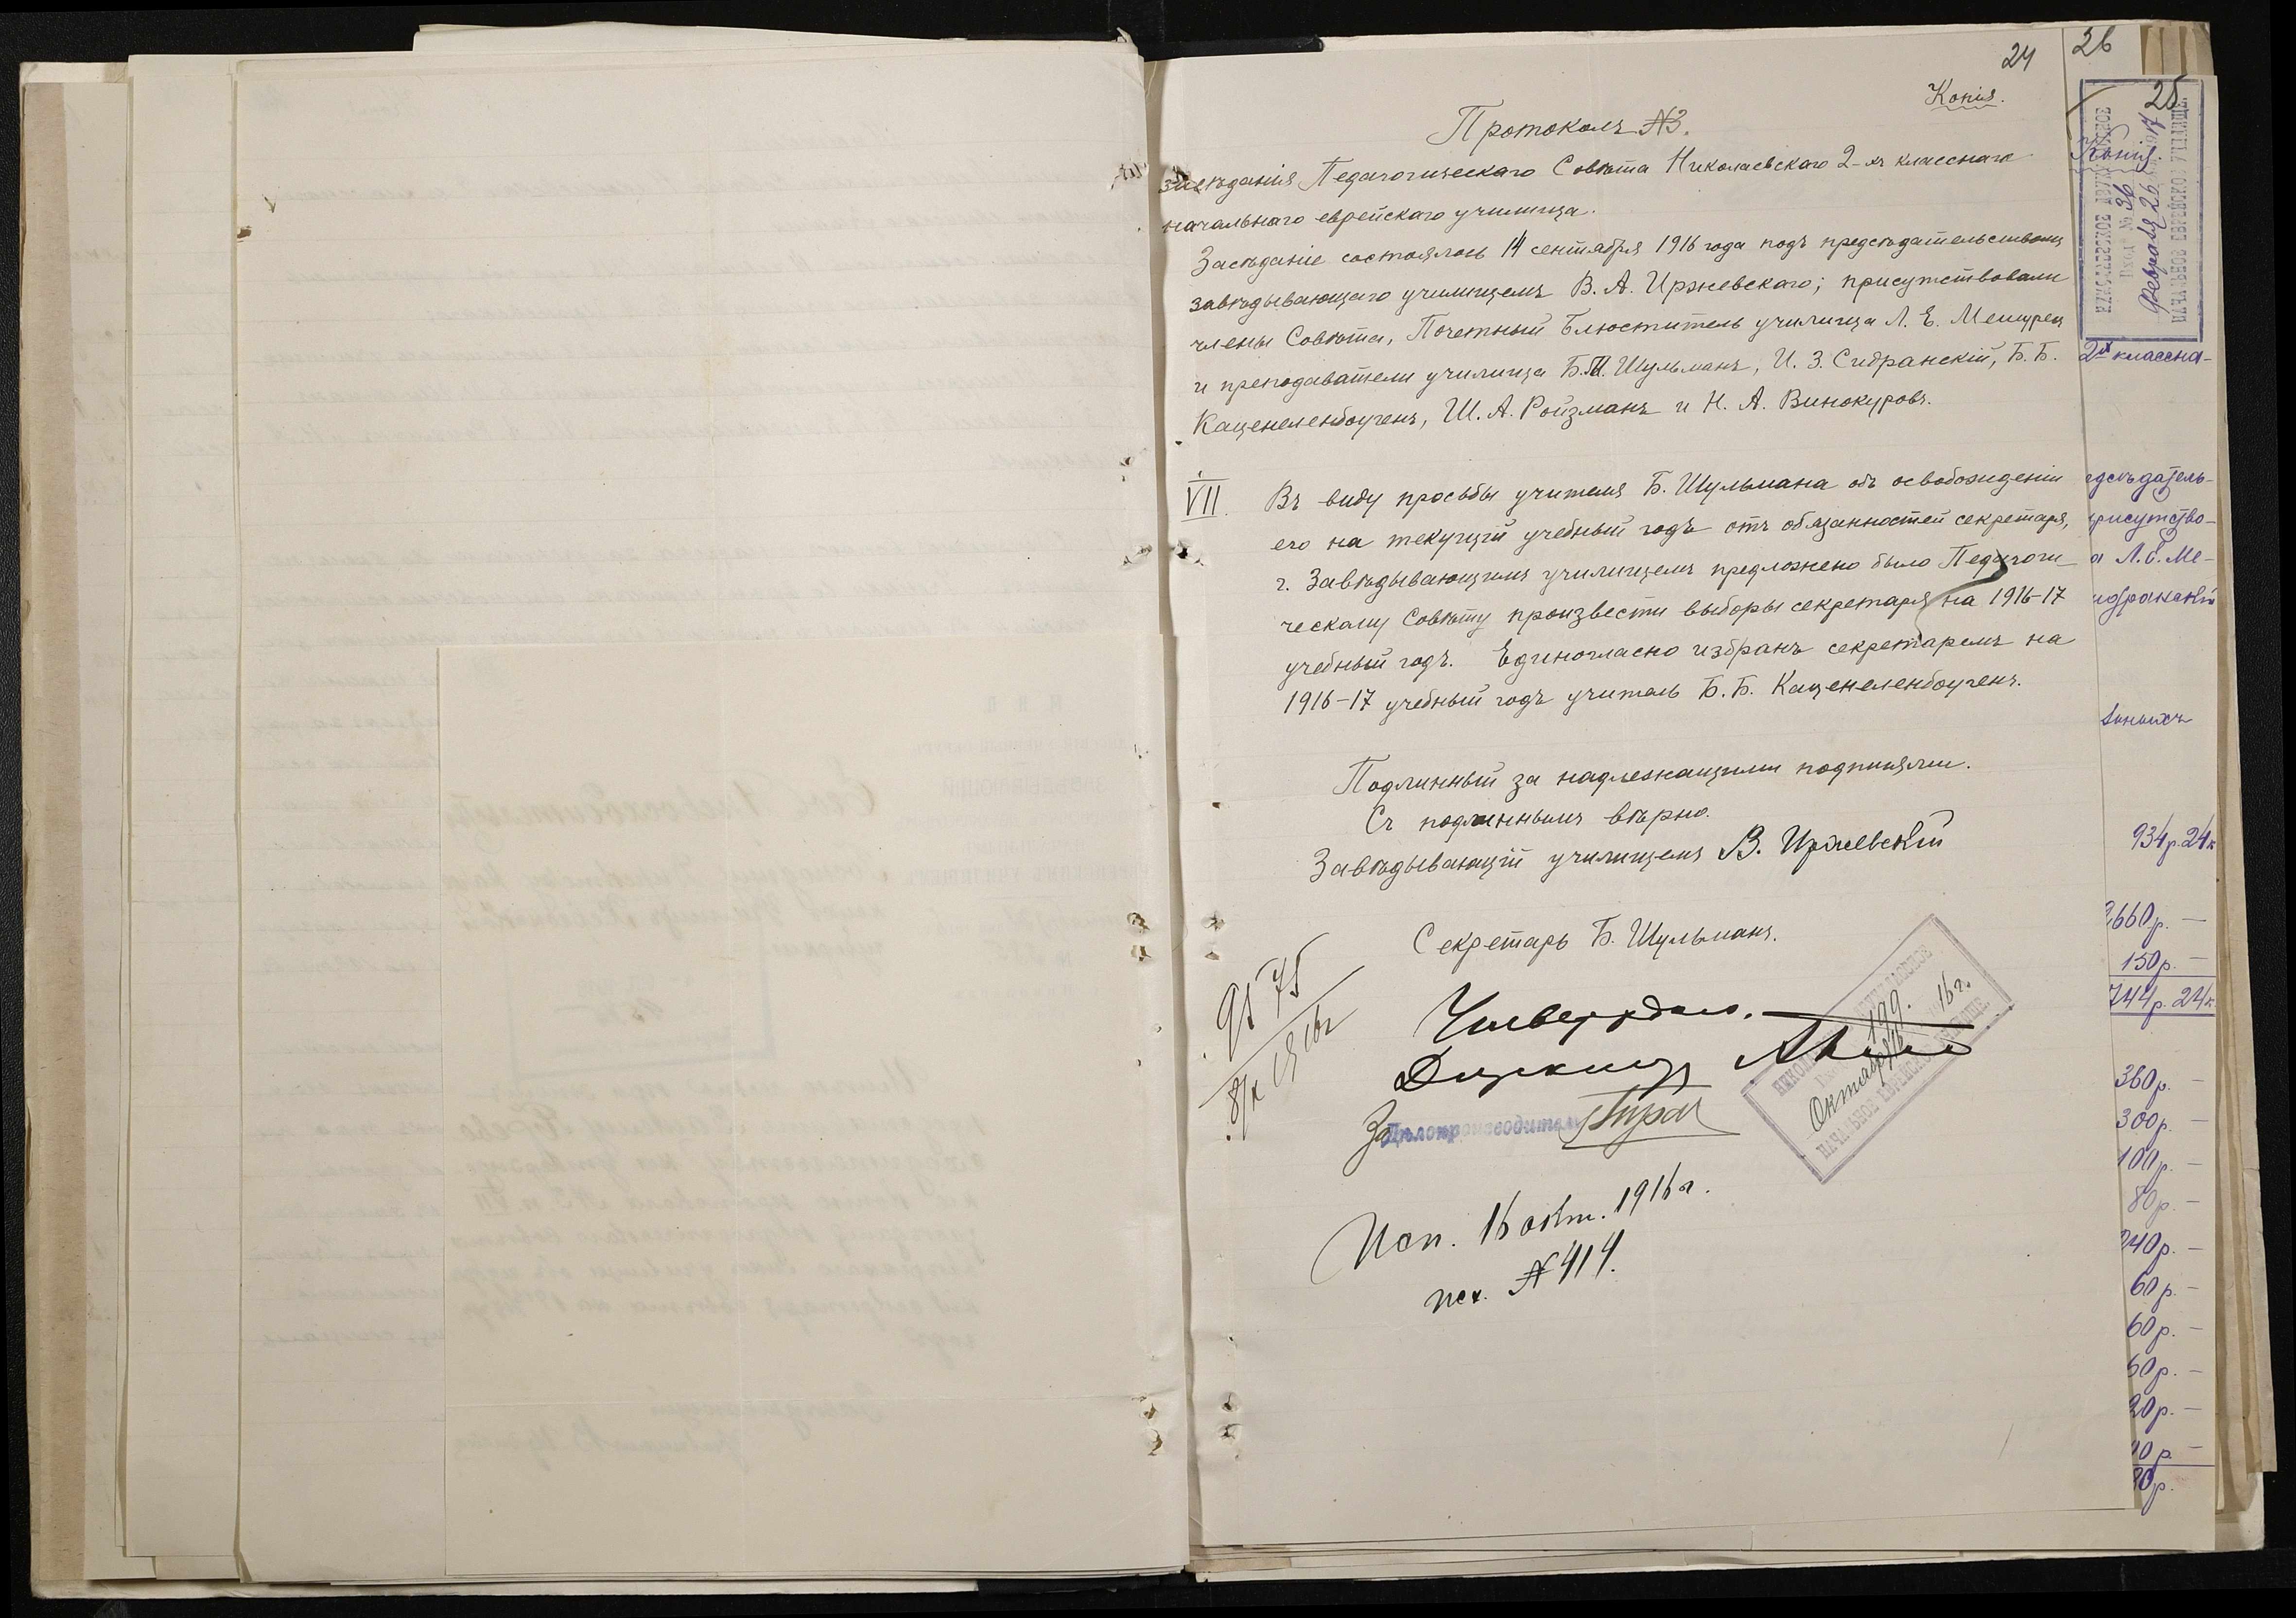 24
Копія.
Протоколъ №3.
засѣданія Педагогическаго Совѣта Николаевскаго 2-хъ класснаго
начальнаго еврейскаго училища.
Засѣданіе состоялось 14 сентября 1916 года подъ предсѣдательствомъ
завѣдывающаго училищемъ В. А. Иржевскаго; присутствовали
члены Совѣта, Почетный Блюститель училища Л. Е. Мешурец
и преподаватели училища Б. Шульманъ, И. З. Сидранскій, Б. Б.
Каценеленбоугенъ, Ш. А. Ройзманъ и Н. А. Винокуровъ.
VII. Въ виду просьбы учителя Б. Шульмана объ освобожденіи
его на текущій учебный годъ отъ обязанностей секретаря,
г. Завѣдывающимъ училищемъ предложено было Педагоги-
ческому Совѣту произвести выборы секретаря на 1916-17
учебный годъ. Единогласно избранъ секретаремъ на
1916-17 учебный годъ учитель Б. Б. Каценеленбоугенъ.
Подлинный за надлежащими подписями.
Съ подлиннымъ вѣрно.
Завѣдывающій училищемъ В. Иржевскій
Секретарь Б. Шульманъ.
Утверждаю.
Директоръ
За Дѣлопроизводителя
199.
Октября 16 16 г.
НАЧАЛЬНОЕ ЕВРЕЙСКОЕ УЧИЛИЩЕ.
9575
8/X 1916 г
Исп. 16 окт. 1916 г.
исх. №414.
26
25
Копія.
НИКОЛАЕВСКОЕ ДВУХКЛАССНОЕ
Вход. № 36
Февраля 26 1917
НАЧАЛЬНОЕ ЕВРЕЙСКОЕ УЧИЛИЩЕ.
2х классна-
едсѣдатель-
присутство-
а Л. Е. Ме-
идранскій
934 р. 24 к
2660 р. —
150 р. —
744 р. 24 к.
360 р. —
300 р. —
100 р. —
80 р. —
240 р. —
60 р. —
60 р. —
60 р. —
20 р. —